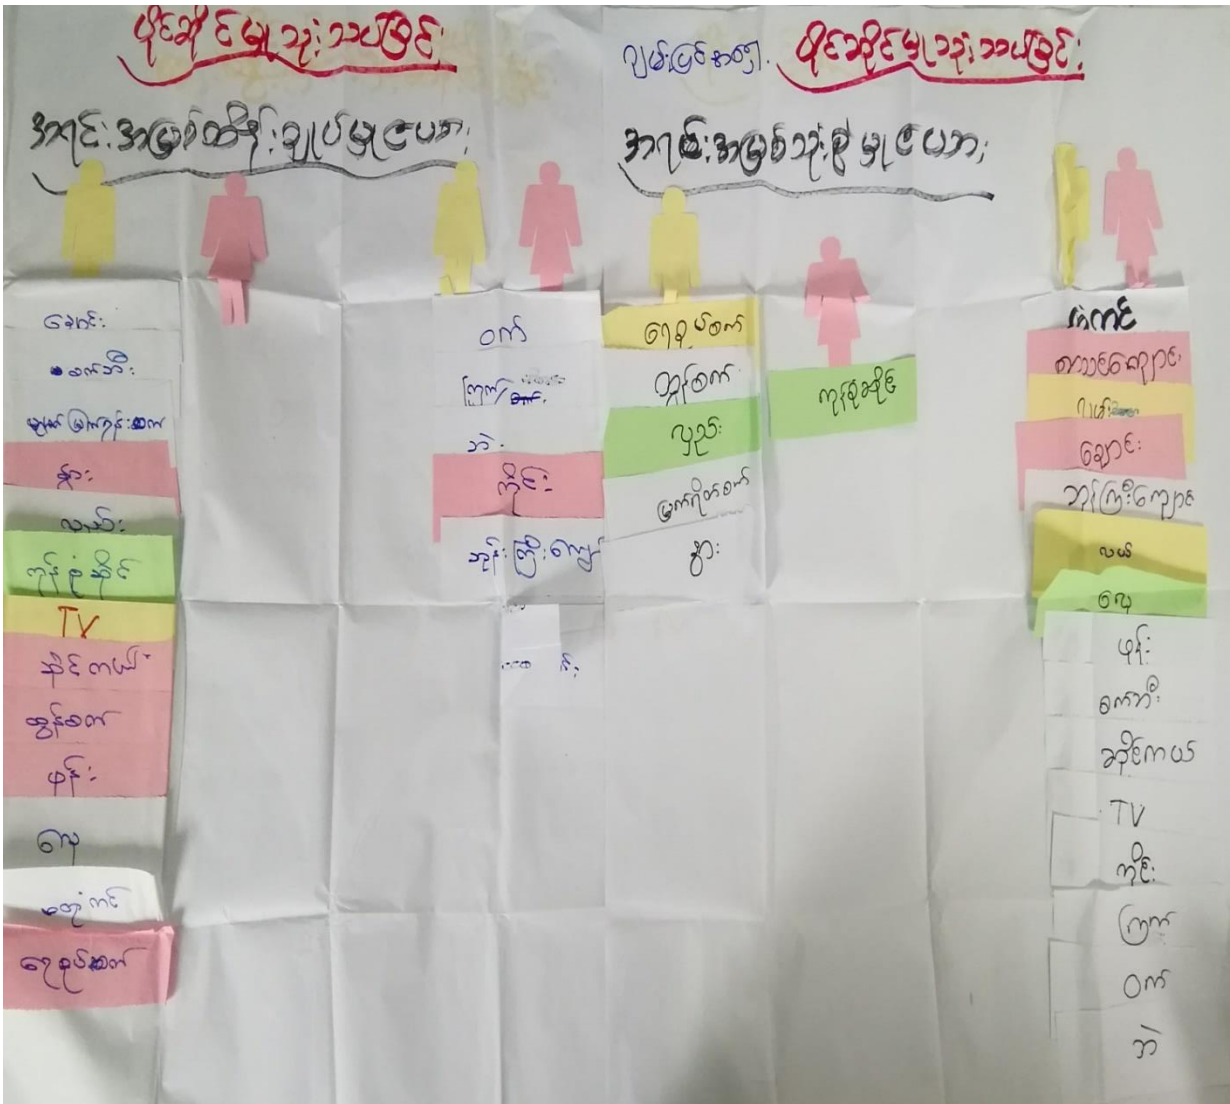 ပိုင်ဆိုင်မှုသုံးသပ်ခြင်း
အရင်းအမြစ်ထိန်းချုပ်မှုဇယား
ချောင်း
စက်ဘီး
နွား
လယ်
ကုန်စုံဆိုင်
TV
ဆိုင်ကယ်
ထွန်စက်
ဖုန်း
လှေ
ရေစုပ်စက်
ဝက်
ကြက်
ဘဲ
ကိုင်း
ဘုန်းကြီးကျောင်း
ပိုင်ဆိုင်မှုသုံးသပ်ခြင်း
အရင်းအမြစ်သုံးစွဲမှုဇယား
ရေစုပ်စက်
ထွန်စက်
လှည်း
မြက်ရိတ်စက်
နွား
ကုန်စုံဆိုင်
စာသင်ကျောင်း
ချောင်း
ဘုန်းကြီးကျောင်း
လယ်
လှေ
ဖုန်း
စက်ဘီး
ဆိုင်ကယ်
TV
ကိုင်း
ကြက်
ဝက်
ဘဲ